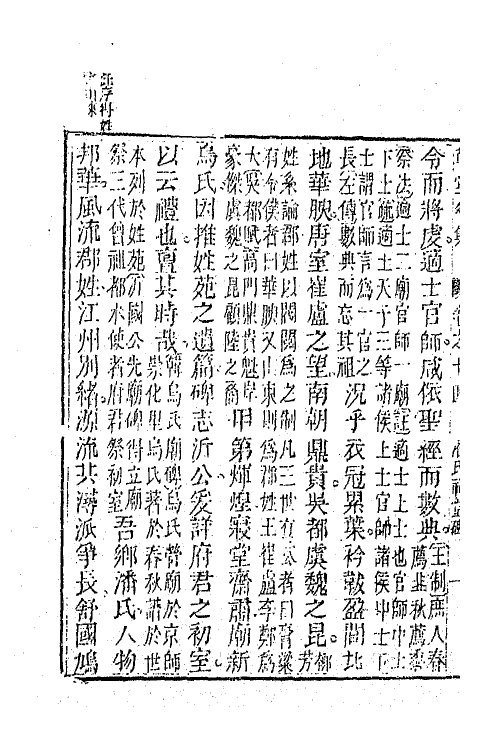 令而將虔適士官師咸依聖經而數典王制庶人春薦韭秋薦黍
祭法適士二廟官師一廟註適士上士也官師中士
下士疏適士天子三等諸侯上士官師諸侯中士下
士謂官師言為一官之
長左傳數典而忘其祖
況乎衣冠累葉衿戟盈閭北
地華腴唐室崔盧之望南朝鼎貴吳都虞魏之昆柳芳
姓系論郡姓以閥閱為之制凡三世有三公者曰膏粱
有令僕者曰華腴又山東則為郡姓王崔盧李鄭為
大吳都賦高門鼎貴魁岸
豪傑虞魏之昆顧陸之裔
甲第輝煌寢堂齋肅廟新
烏氏因推姓苑之遺篇碑志沂公爰詳府君之初室
以云禮也亶其時哉韓烏氏廟碑烏氏營廟於京師
崇化里烏氏著於春秋譜於世
本列於姓苑沂國公先廟碑得立廟
祭三代曾祖都水使者府君祭初室
吾鄉潘氏人物
邦華風流郡姓江州別緒源流共溯派爭長舒國鳩